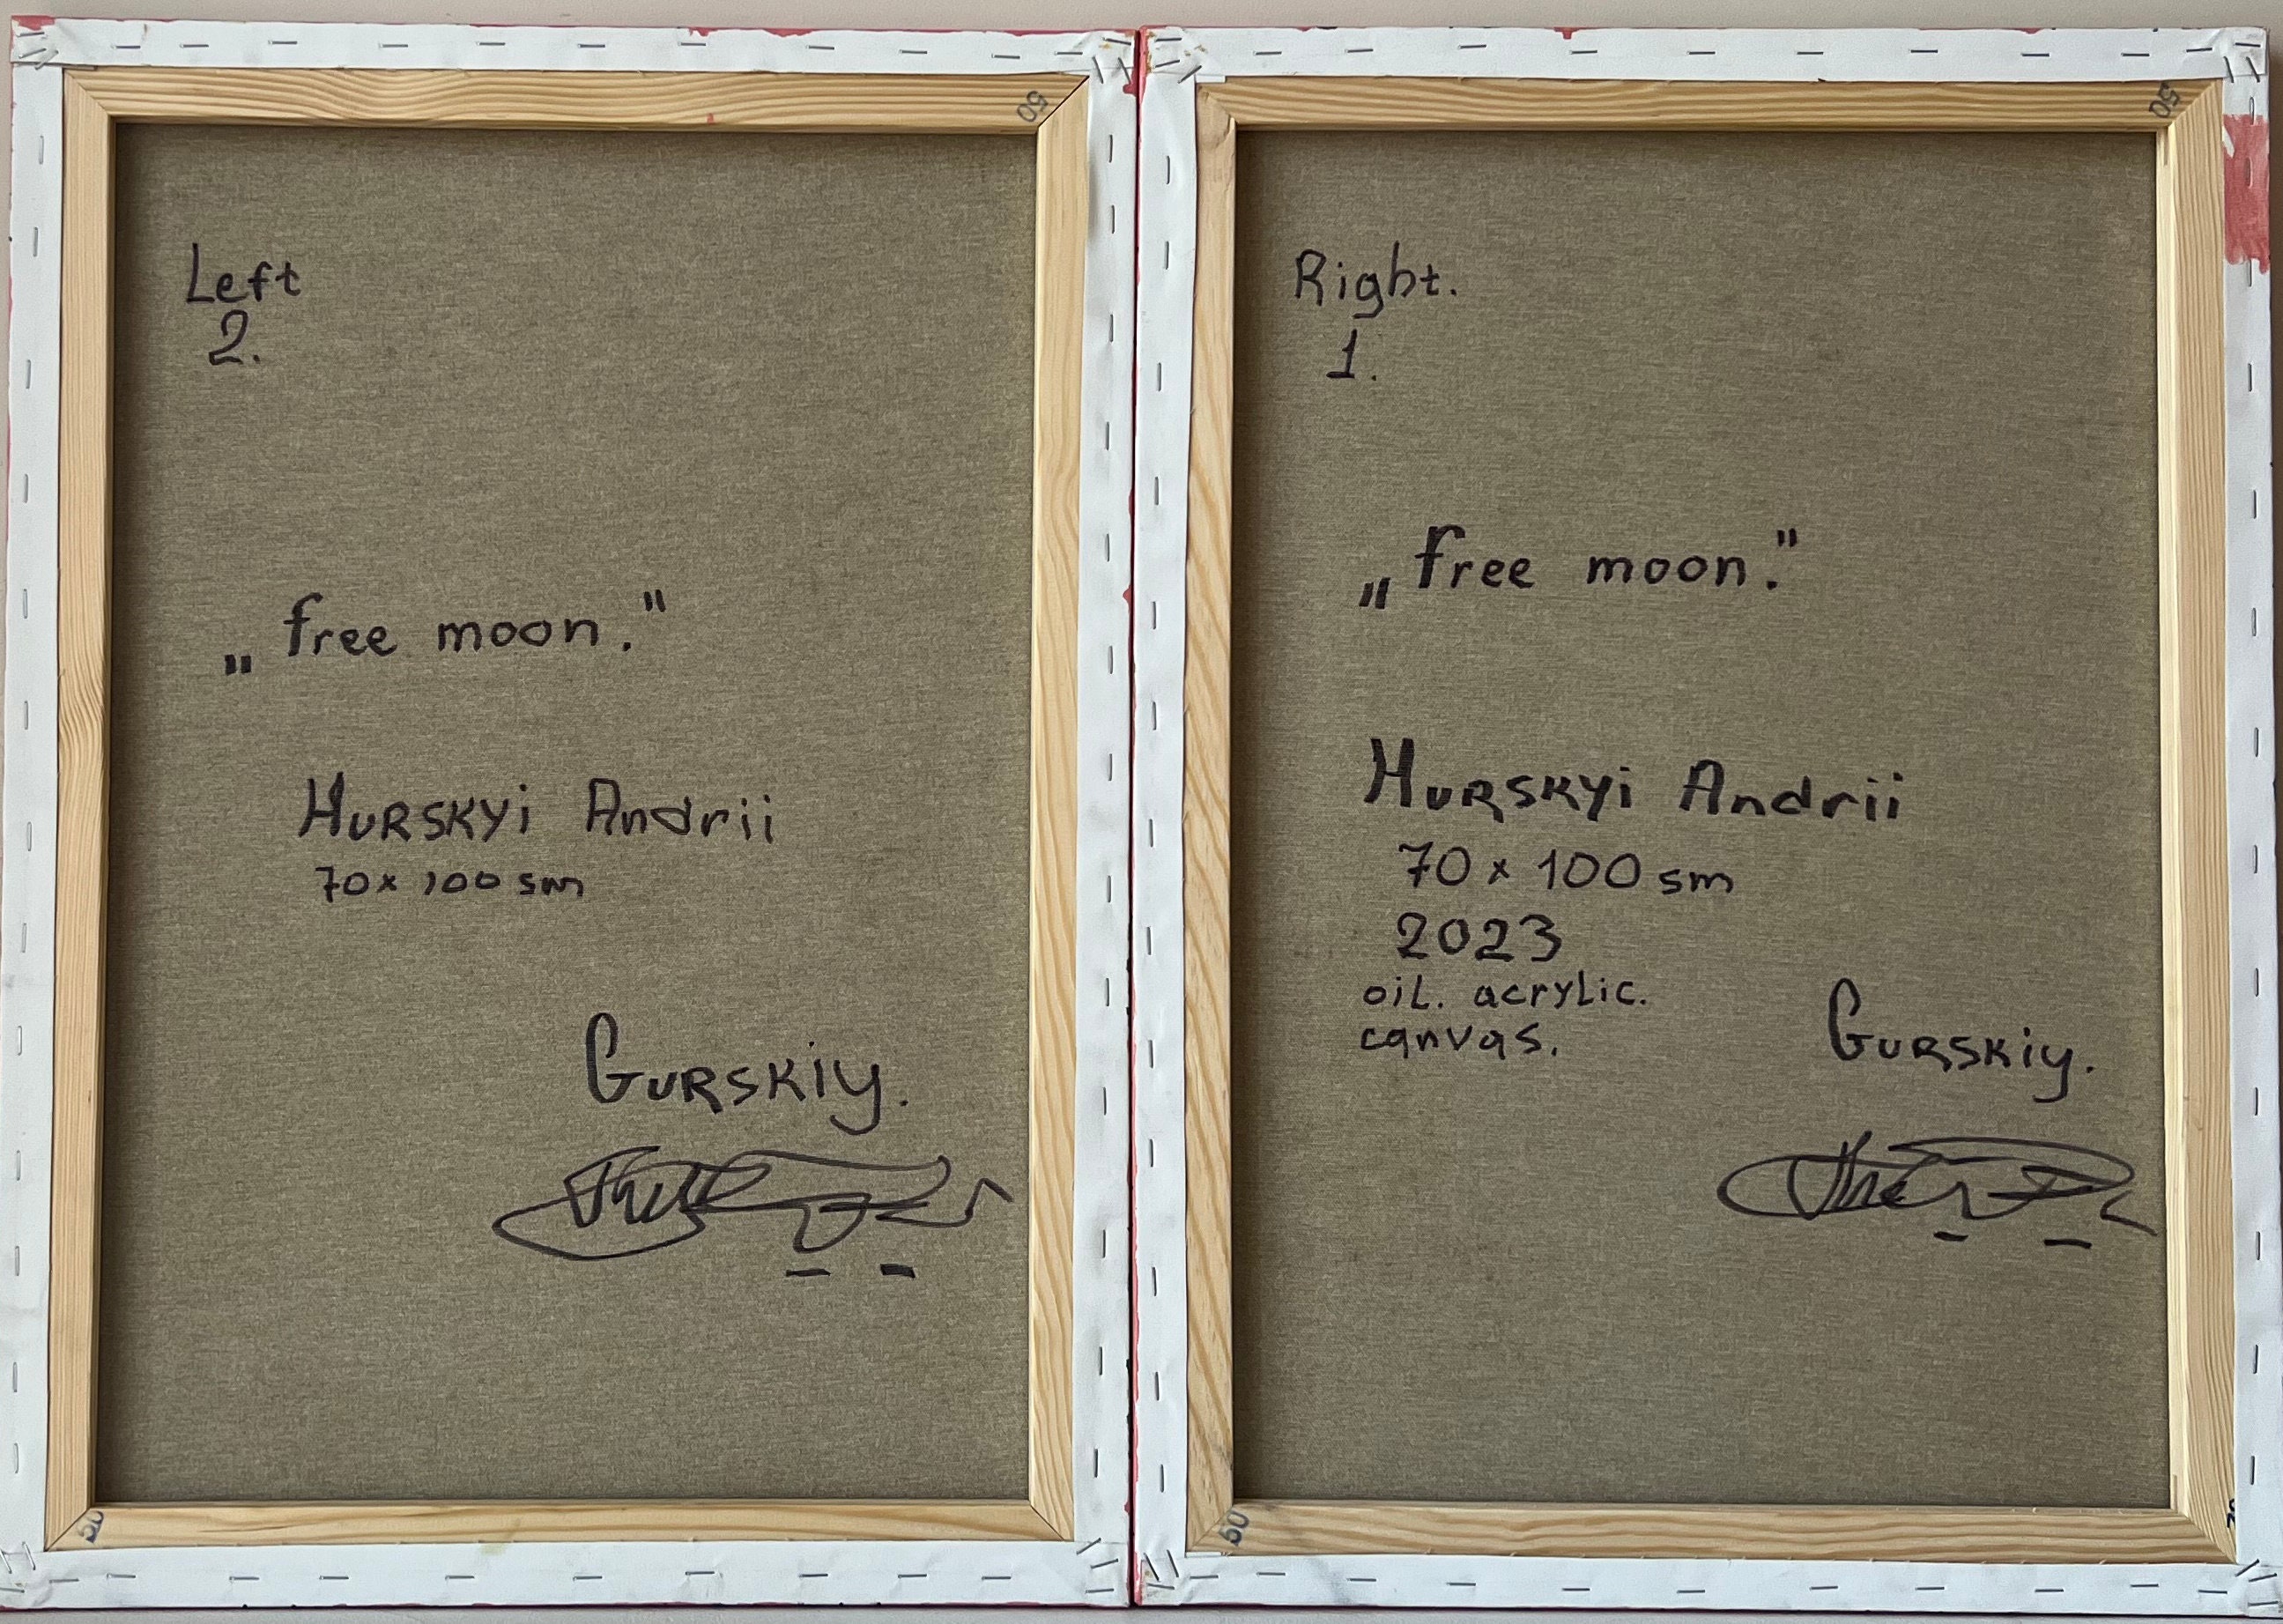 Left
2.
„free moon."
Hurskyi Andrii
70 x 100 sm
Gurskiy.
50
50
Right.
1.
„free moon."
Hurskyi Andrii
70 x 100 sm
2023
oil. acrylic.
canvas.
Gurskiy.
50
50